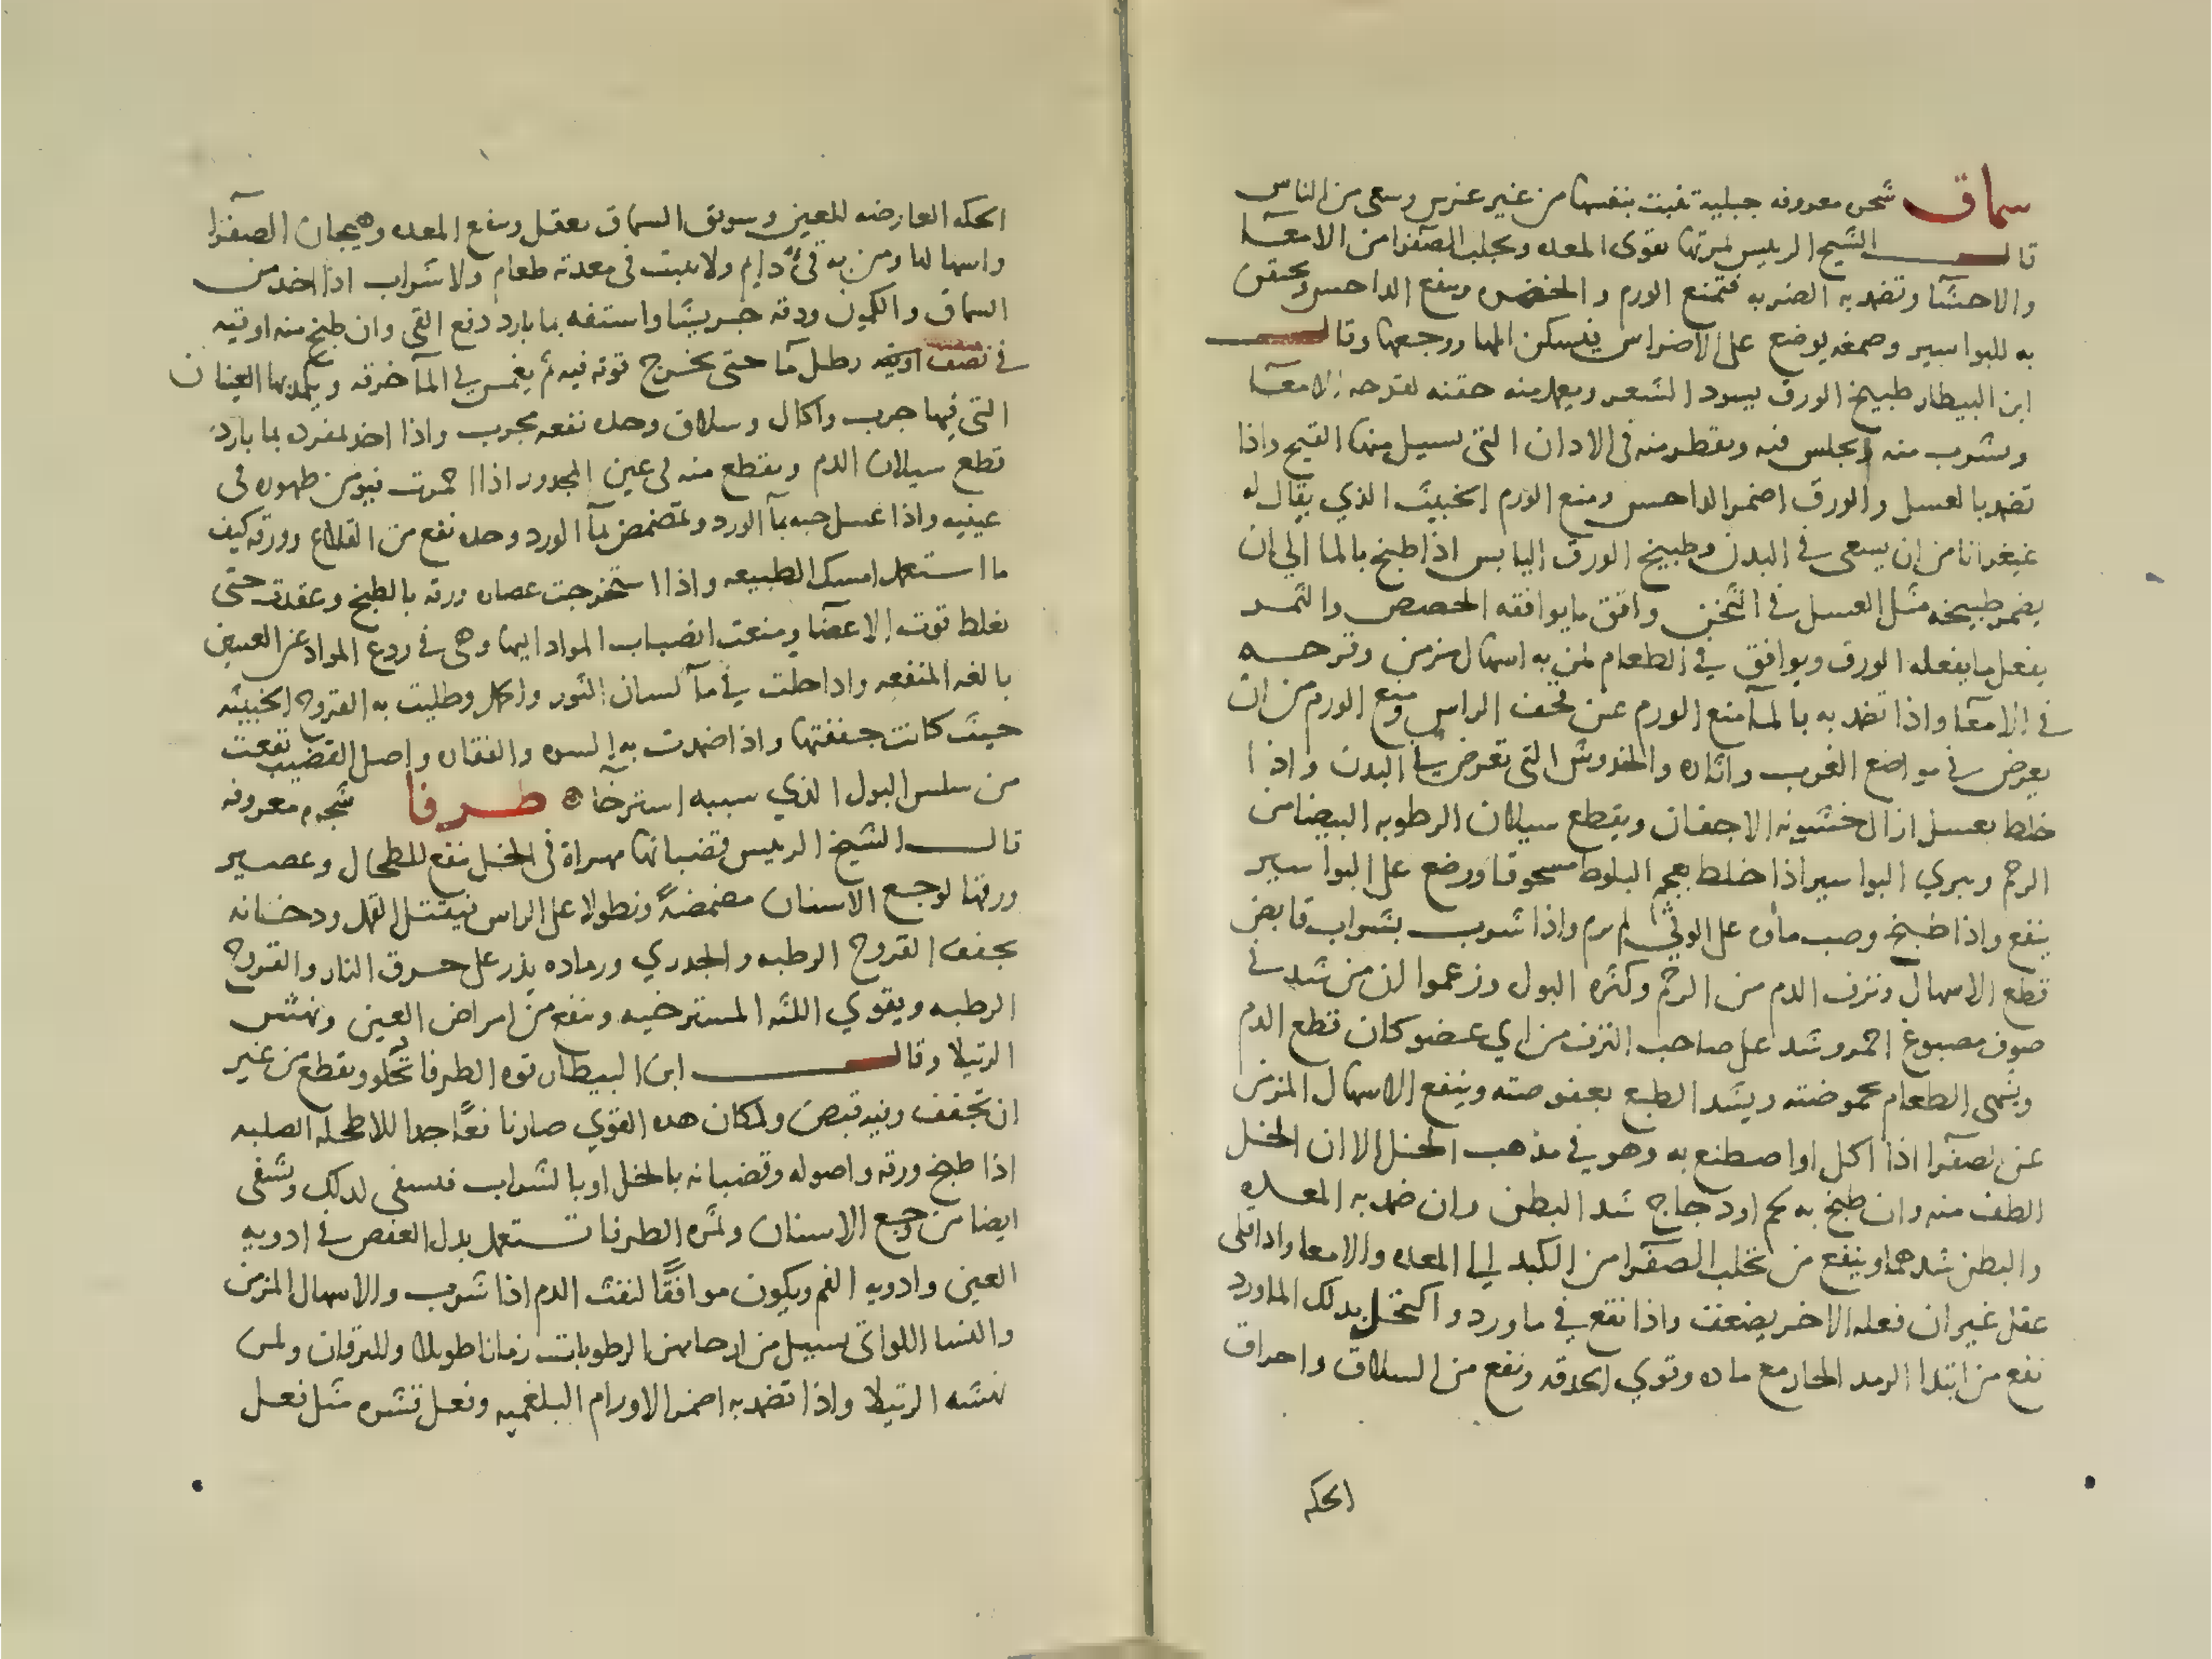 سماق شجره معروفه جبلية تنبت بنفسها من غير غرس وسعى من الناس
قال الشيخ الرييس ثمرتها تقوى المعده وتجلب الصفرا من الامعآ
والاحشآ وتضمد به الضربه فتمنع الورم والخضره وينفع الداحس ويحتقن
به للبواسير وصمغه يوضع على الاضراس فيسكن المها ووجعها وقال
ابن البيطار طبيخ الورق يسود الشعر ويعمل منه حقنه لقرحه الامعآ
ويشرب منه ويجلس فيه ويقطر منه فى الاذان التى يسيل منها القيح واذا
تضمد بالعسل والورق اضمر الداحس ومنع الورم الخبيث الذي يقال له
غنغرانا من ان يسعى في البدن وطبيخ الورق اليابس اذا طبخ بالما الي ان
يضمر طبيخه مثل العسل في الثخن وافق ما يوافقه الحضض والثمر
يفعل ما يفعله الورق ويوافق في الطعام لمن به اسهال مزمن وقرحه
في الامعآ واذا تضمد به بالمآ منع الورم عن قحف الراس ومنع الورم من ان
يعرض في مواضع الضرب واثاره والخدوش التى تعرض في البدن واذا
خلط بعسل ازال خشونه الاجفان ويقطع سيلان الرطوبه البيضا من
الرحم ويبري البواسير اذا خلط بفحم البلوط مسحوقا ووضع على البواسير
ينفع واذا طبخ وصب ماوه على الوثى لم يرم واذا شرب بشراب قابض
قطع الاسهال ونزف الدم من الرحم وكثره البول وزعموا ان من شد في
صوف مصبوغ احمر وشد على صاحب النزف من اي عضو كان قطع الدم
ويشهى الطعام بحموضته ويشد الطبع بعفوصته وينفع الاسهال المزمن
عن الصفرا اذا اكل او اصطنع به وهو في مذهب الخل الا ان الخل
الطف منه وان طبخ به لحم او دجاج شد البطن وان ضمد به المعده
والبطن شدهما وينفع من تحلب الصفرا من الكبد الى المعده والامعا واذا قلى
عقل غير ان فعله الاخر يضعف واذا نقع في ماورد واكتحل بذلك الماورد
نفع من ابتدا الرمد الحار مع ماده وقوي الحدقه ونفع من السلاق واحراق
الحكه
الحكه العارضه للعين وسويق السماق يعقل وينفع المعده وهيجان الصفرا
واسهالها ومن به قئ دايم ولا يثبت فى معدته طعام ولا شراب اذا اخذ من
السماق والكمون ودقه جريشا واستفه بما بارد دفع القى وان طبخ منه اوقيه
في نصف رطل مآ حتى يخرج قوته فيه ثم يغمس في المآ خرقه ويكمد بها العينان
التى فيها جرب واكال وسلاق وحده نفعه مجرب واذا اخذ لمفرده بما بارد
قطع سيلان الدم ويقطع منه فى عين المجدور اذا احمرت فيومن ظهوره فى
عينيه واذا غسل حبه بمآ الورد وتمضمض بمآ الورد وحده نفع من القلاع وورقه كيف
ما استعمل امسك الطبيعه واذا استخرجت عصاره ورقه بالطبخ وعقدت حتى
تغلظ قوت الاعضآ ومنعت انصباب المواد اليها وهى في ردع المواد عن العين
بالغه المنفعه واذا حلت في مآ لسان الثور واكل وطليت به القروح الخبيثه
حيث كانت جففتها واذا ضمدت به السره والفقار واصل القضيب نفعت
من سلس البول الذي سببه استرخآ ۞ طرفا شجره معروفه
قال الشيخ الرييس قضبانها مهراة فى الخل تنفع للطحال وعصير
ورقها لوجع الاسنان مضمضةً ونطولا على الراس فيقتل القمل ودخانه
يجفف القروح الرطبه والجدري ورماده يذر على حرق النار والقروح
الرطبه ويقوي اللثه المسترخيه وينفع من امراض العين ونهش
الرتيلا وقال ابن البيطار قوه الطرفا تجلو وتقطع من غير
ان تجفف وفيه قبض ولمكان هذه القوي صار نافعًا جدا للاطحله الصلبه
اذا طبخ ورقه واصوله وقضبانه بالخل او بالشراب فيسقى لذلك ويشفى
ايضا من وجع الاسنان وثمره الطرفا تستعمل بدل العفص في ادويه
العين وادويه الفم ويكون موافقًا لنفث الدم اذا شرب والاسهال المزمن
والنسا اللواتى يسيل من ارحامهن الرطوبات زمانا طويلا ولليرقان ولمن
نهشه الرتيلا واذا تضمد به اضمر الاورام البلغميه وفعل قشره مثل فعل